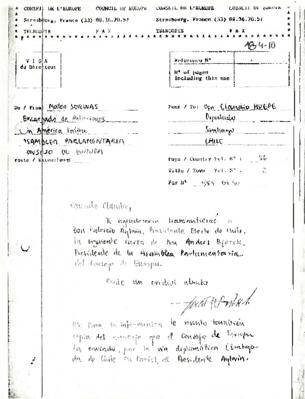 CONSEIL DE L'EUROPE COUNCIL OF EUROPE CONSEIL DE L'EUROPE COUNCIL OF EUROPE
Strasbourg, France (33) 88.36.70.57 Strasbourg, France (33) 88.36.70.57
TELECOPIE F A X TELECOPIE F A X
V I S A
du Directeur
Reference N° -
N° of pages
including this one
De / From: Mateo SORINAS
Encargado de Relaciones
con América Latina
ASAMBLEA PARLAMENTARIA
CONSEJO DE EUROPA
Pour / To: Dpn. Claudio HUEPE
Diputado
Santiago
CHILE
Pays / Country Tel. N° : 56
Ville / Town Tel. N° : 2
Fax N°
Querido Claudio,
Te agradecería transmitieras a
Don Patricio Aylwin, Presidente Electo de Chile,
la siguiente carta de Don Anders Björck,
Presidente de la Asamblea Parlamentaria
del Consejo de Europa.
Recibe un cordial abrazo
PS. Para tu información te mando también
copia del mensaje que el Consejo de Europa
ha enviado, por la vía diplomática (Embaja-
da de Chile en París), al Presidente Aylwin.